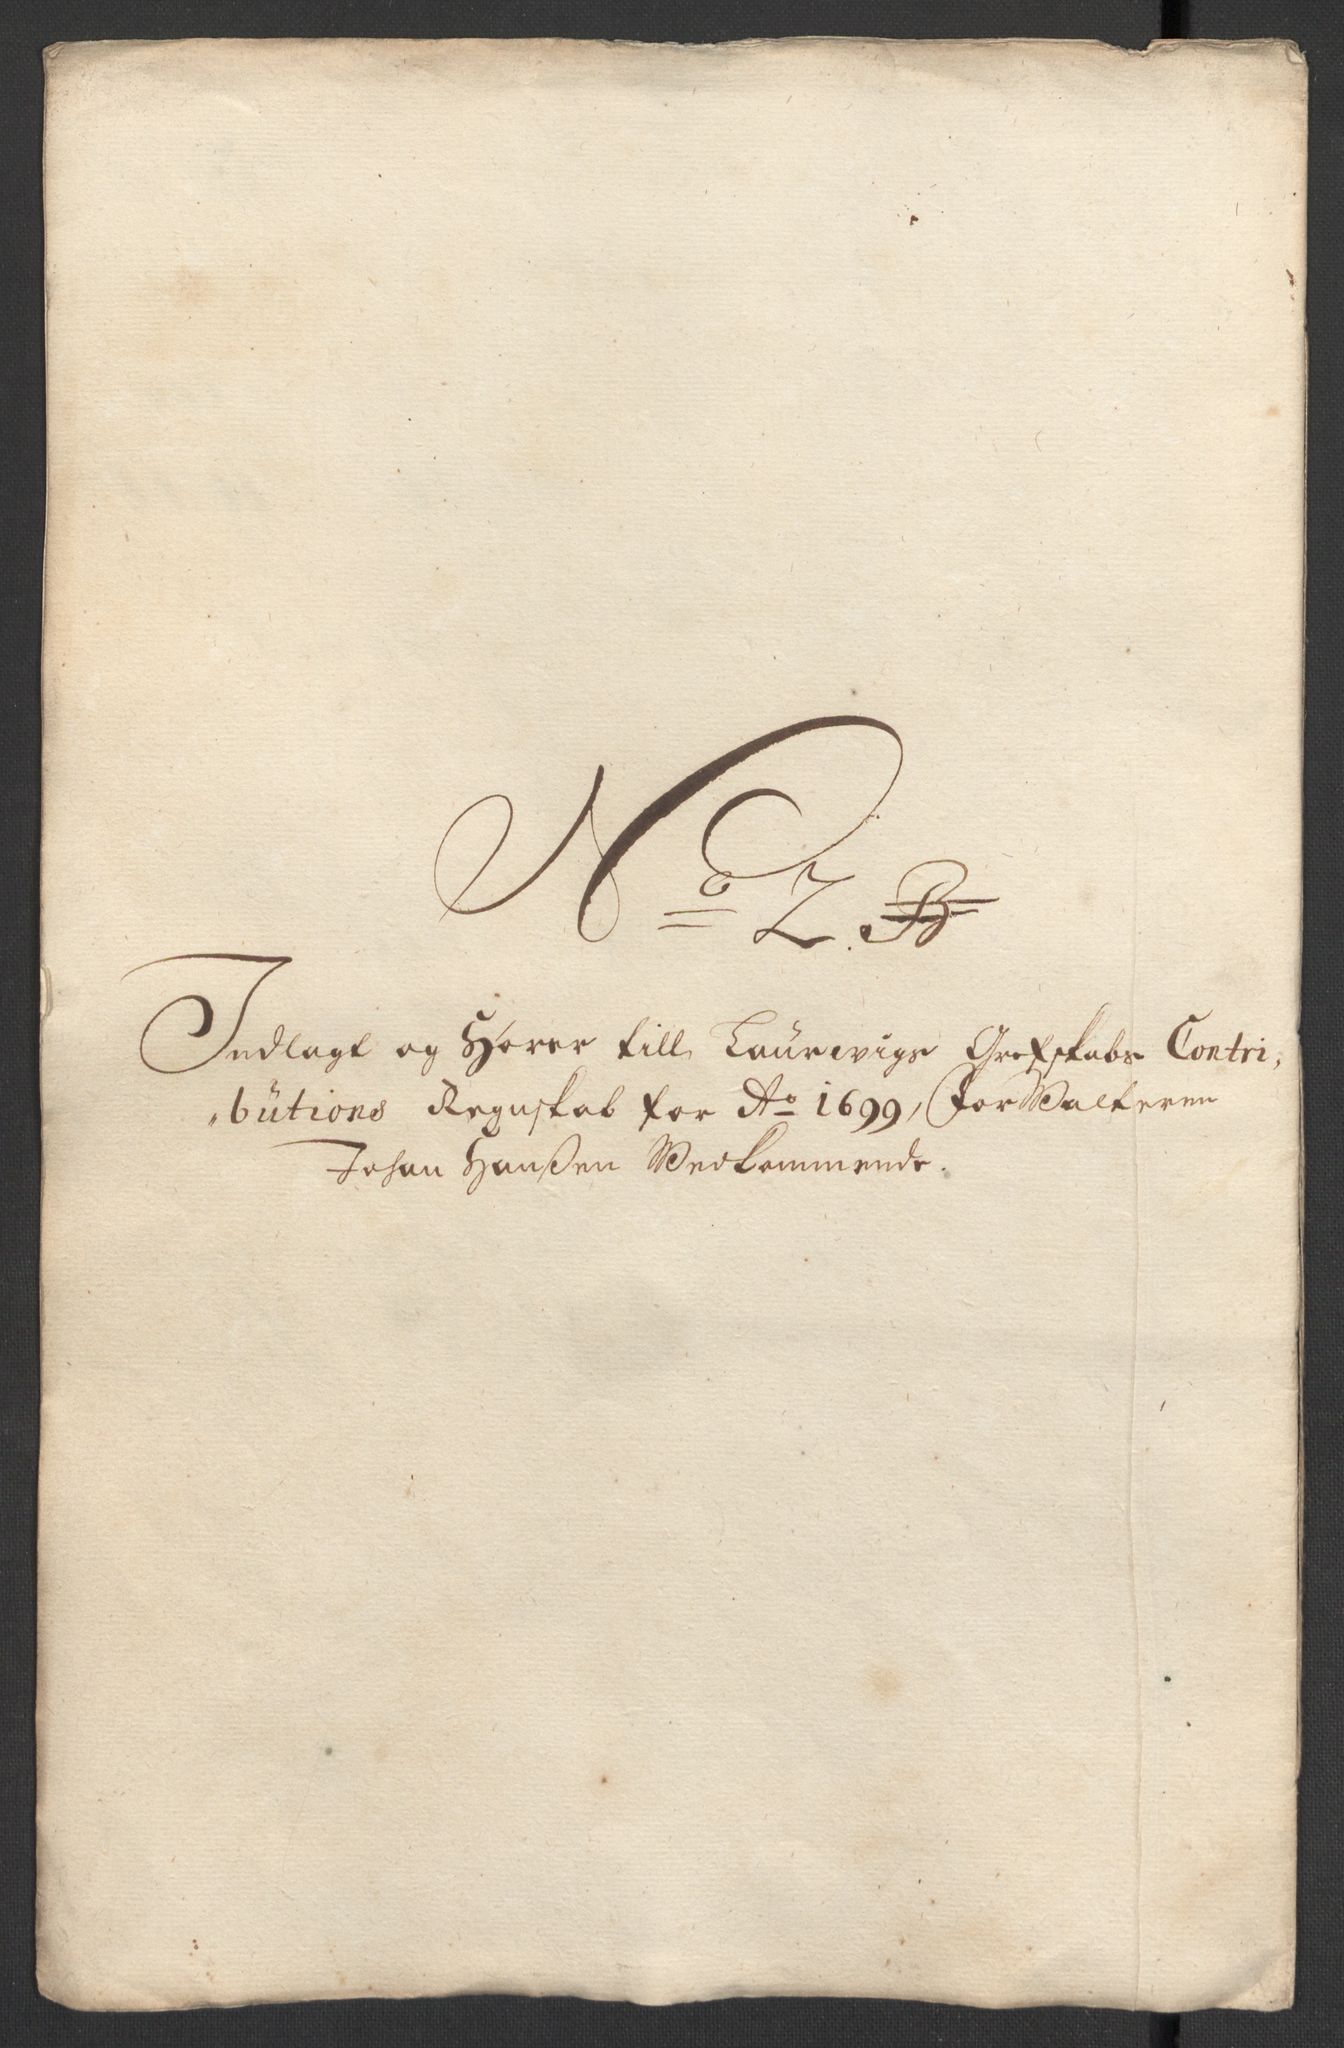 No 2.
Indlagt og Hører till Laurwigs Grefskabs Contri,
„bütions Regnskab for Ao 1699, ForWalteren
Johan Hanßen Wedkommende.